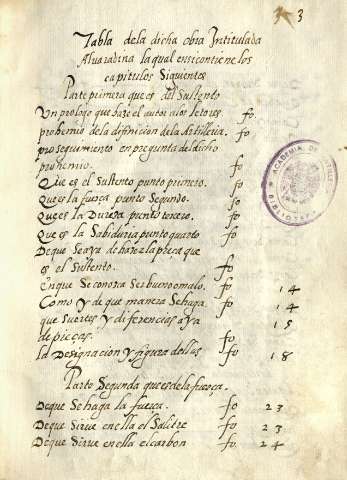 3 3
Tabla dela dicha obra Intitulada
Alvaradina la qual en si contiene los
capitulos Siguientes
Parte primera que es del Sustento
Un prologo que haze el autor alos letores. fo.
prohemio de la difinicion de la Artilleria. fo
proseguimiento en pregunta del dicho
prohemio. fo
Que es el Sustento punto primero. fo
Que es la fuerça punto Segundo. fo
Que es la Dureza punto tercero. fo
Que es la Sabiduria punto quarto fo
De que Seaya de hazer la pieça que
es el Sustento. fo
En que Se conosra Ser bueno o malo. fo 14
Como y de que manera Sehaga. fo 14
que Suertes y diferencias aya fo 15
de pieças. fo
La Designacion y figura dellas fo 18
Parte Segunda que es de la fuerça.
De que Sehaga la fuerça. fo 23
De que Sirue en ella el Salitre fo 23
De que Sirue en ella el carbon fo 24
ACADEMIA DE
BIBLIOTECA